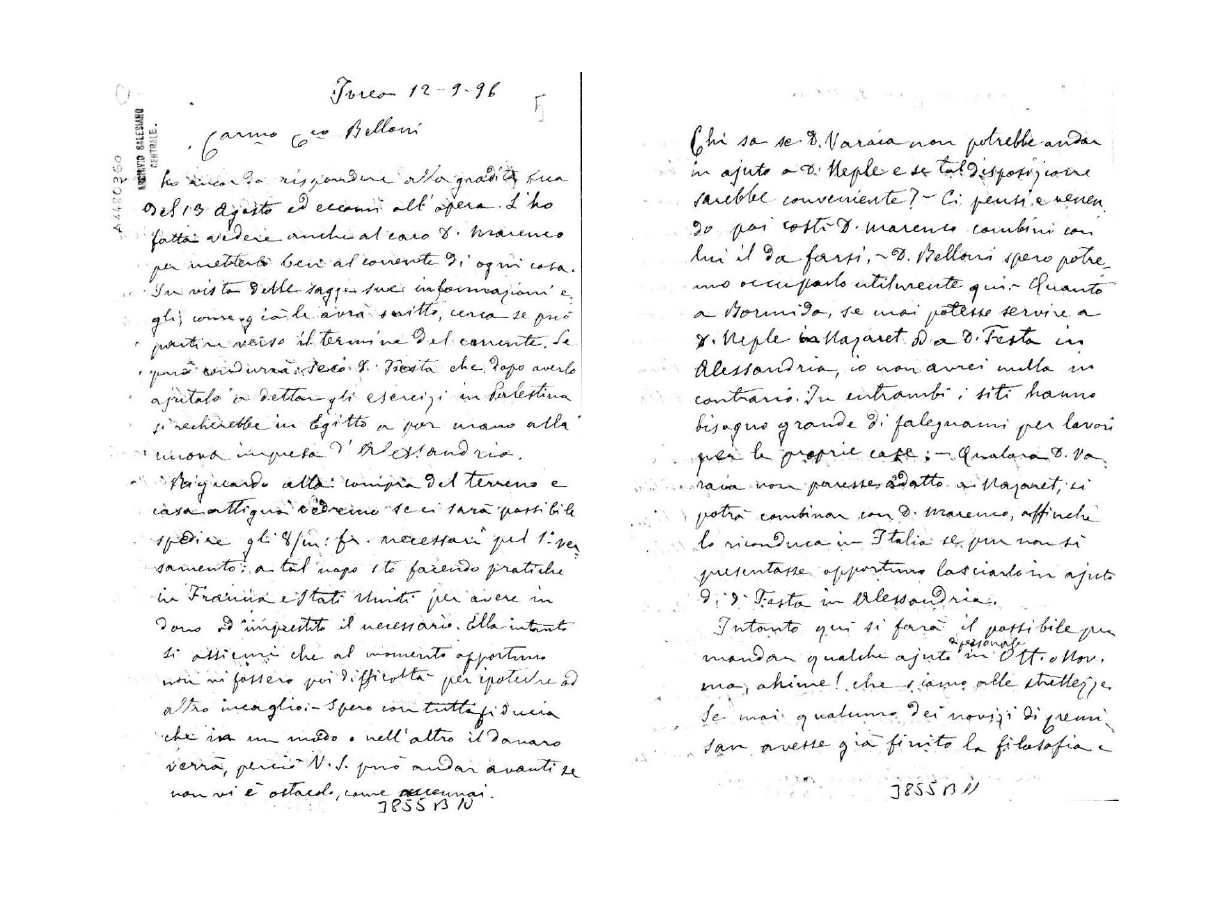 Ivrea 12-9-96
5
Carmo Co Belloni
ARCHIVIO SALESIANO
CENTRALE.
A4480360
ho ancor da rispondere alla gradita sua
del 13 Agosto ed eccomi all'opera. L'ho
fatta vedere anche al caro D. Marenco
per metterlo ben al corrente di ogni cosa.
In vista delle sagge sue informazioni e
gli, come già le avrà scritto, cerca se può
partire verso il termine del corrente. Se
può condurrà seco D. Festa che dopo averlo
ajutato a dettar gli esercizi in Palestina
si recherebbe in Egitto a por mano alla
nuova impresa d'Alessandria.
Riguardo alla compra del terreno e
casa attigua vedremo se ci sarà possibile
spedire gli 8/m: fr. necessari pel 1° ver
samento: a tal uopo sto facendo pratiche
in Francia e Stati Uniti per avere in
dono od imprestito il necessario. Ella intanto
si assicuri che al momento opportuno
non vi fossero poi difficoltà per ipoteche od
altro incaglio. - Spero con tutta fiducia
che in un modo o nell'altro il danaro
verrà, perciò V. S. può andar avanti se
non vi è ostacolo, come accennai.
3855 B 10
Chi sa se D. Varaia non potrebbe andar
in ajuto a D. Neple e se tal disposizione
sarebbe conveniente? - Ci pensi e venen
do poi costì D. Marenco combini con
lui il da farsi. - D. Belloni spero potre_
mo occuparlo utilmente qui. - Quanto
a Bormida, se mai potesse servire a
D. Neple in Nazaret od a D. Festa in
Alessandria, io non avrei nulla in
contrario. In entrambi i siti hanno
bisogno grande di falegnami per lavori
per le proprie case; - Qualora D. Va-
raia non paresse adatto a Nazaret, si
potrà combinar con D. Marenco, affinchè
lo riconduca in Italia se pur non si
presentasse opportuno lasciarlo in ajuto
di D. Festa in Alessandria.
Intanto qui si farà il possibile per
mandar qualche ajuto di personale in Ott. o Nov.
ma, ahime! che siamo alle strettezze.
Se mai qualcuno dei novizi di Cremi-
san avesse già finito la filosofia e
3855 B 11